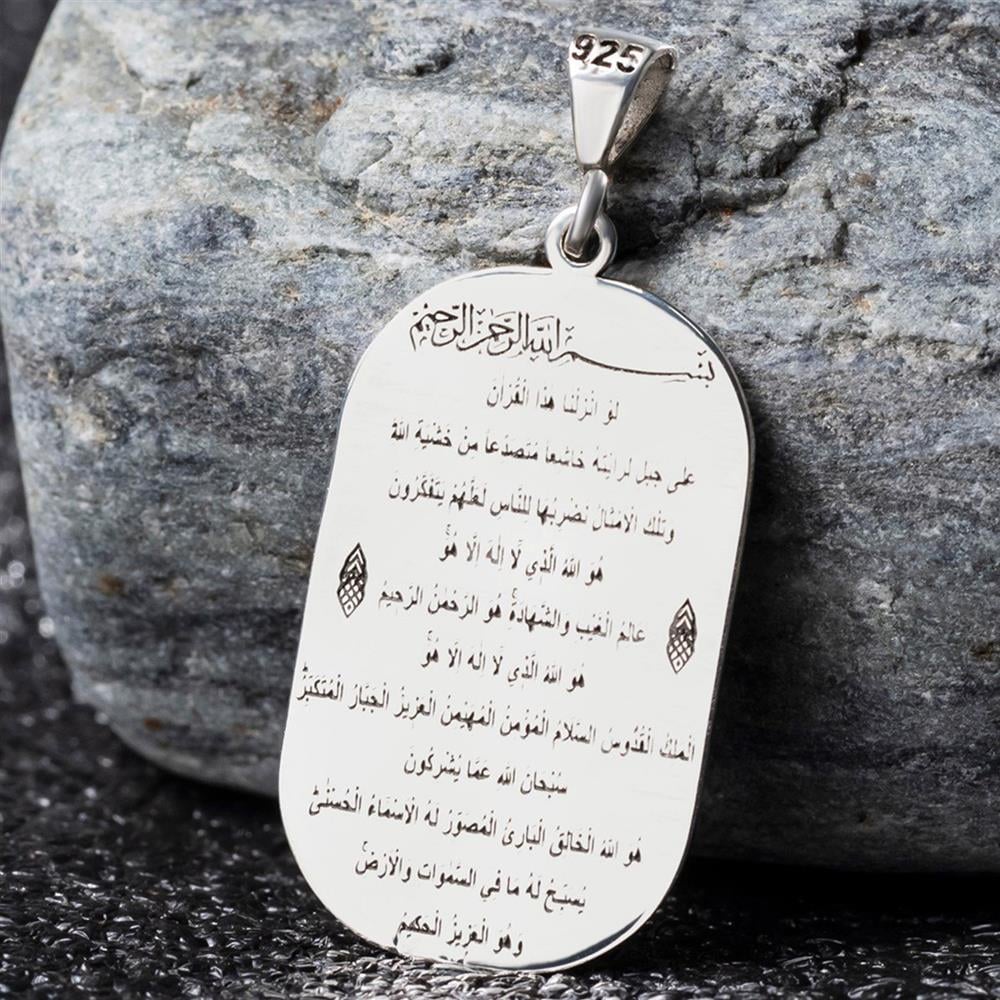 925
بِسْمِ اللهِ الرَّحْمٰنِ الرَّحِيْمِ
لَوْ اَنْزَلْنَا هٰذَا الْقُرْاٰنَ
عَلٰى جَبَلٍ لَرَاَيْتَهُ خَاشِعاً مُتَصَدِّعاً مِنْ خَشْيَةِ اللهِ
وَتِلْكَ الْاَمْثَالُ نَضْرِبُهَا لِلنَّاسِ لَعَلَّهُمْ يَتَفَكَّرُونَ
هُوَ اللهُ الَّذِي لَا اِلٰهَ اِلَّا هُوَۚ
عَالِمُ الْغَيْبِ وَالشَّهَادَةِۚ هُوَ الرَّحْمٰنُ الرَّحِيمُ
هُوَ اللهُ الَّذِي لَا اِلٰهَ اِلَّا هُوَۚ
اَلْمَلِكُ الْقُدُّوسُ السَّلَامُ الْمُؤْمِنُ الْمُهَيْمِنُ الْعَزِيزُ الْجَبَّارُ الْمُتَكَبِّرُۜ
سُبْحَانَ اللهِ عَمَّا يُشْرِكُونَ
هُوَ اللهُ الْخَالِقُ الْبَارِئُ الْمُصَوِّرُ لَهُ الْاَسْمَاءُ الْحُسْنٰىۜ
يُسَبِّحُ لَهُ مَا فِي السَّمٰوَاتِ وَالْاَرْضِۚ
وَهُوَ الْعَزِيزُ الْحَكِيمُ